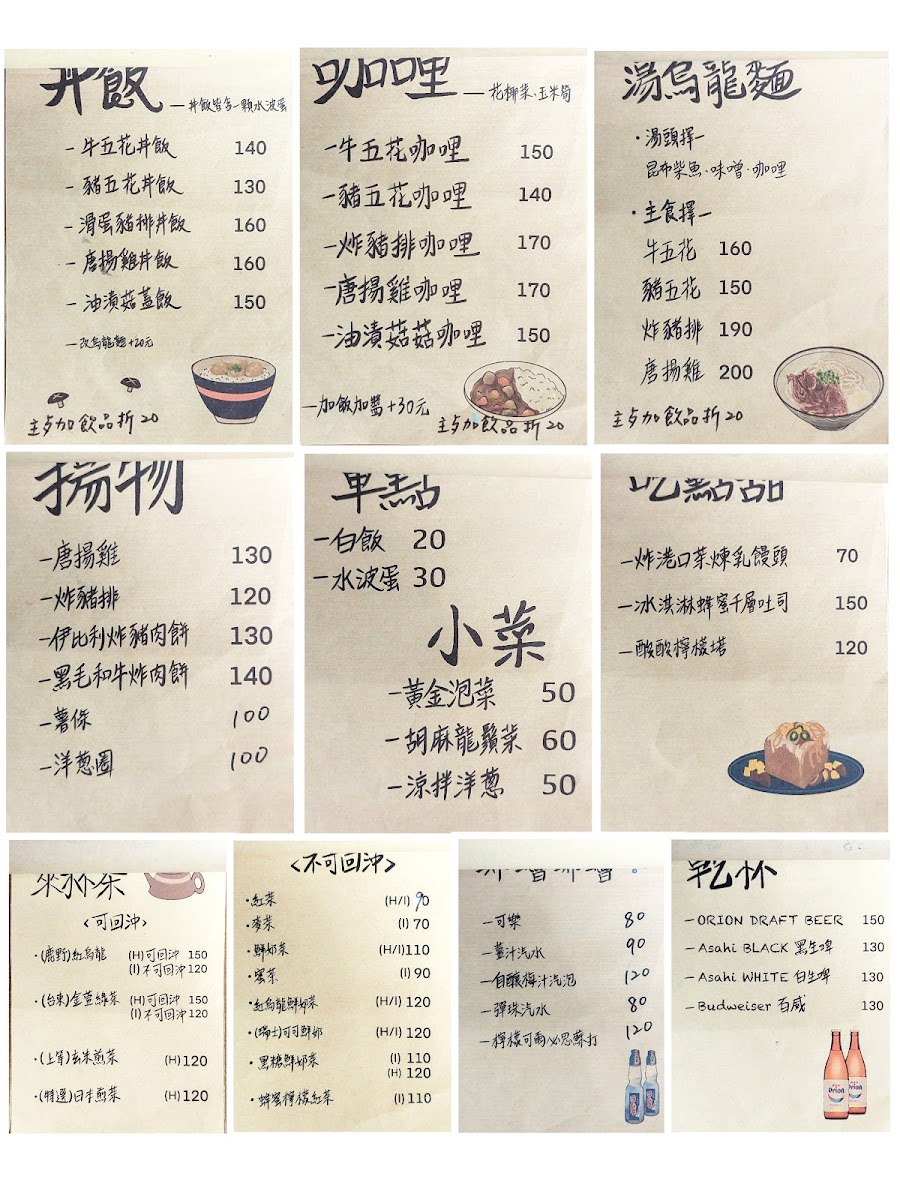 丼飯 — 丼飯皆含一顆水波蛋
- 牛五花丼飯 140
- 豬五花丼飯 130
- 滑蛋豬排丼飯 160
- 唐揚雞丼飯 160
- 油漬菇蓋飯 150
— 改烏龍麵+20元
主歺加飲品折20
咖哩 — 花椰菜、玉米筍
- 牛五花咖哩 150
- 豬五花咖哩 140
- 炸豬排咖哩 170
- 唐揚雞咖哩 170
- 油漬菇菇咖哩 150
— 加飯加醬+30元
主歺加飲品折20
湯烏龍麵
・湯頭擇一
昆布柴魚・味噌・咖哩
・主食擇一
牛五花 160
豬五花 150
炸豬排 190
唐揚雞 200
主歺加飲品折20
揚物
- 唐揚雞 130
- 炸豬排 120
- 伊比利炸豬肉餅 130
- 黑毛和牛炸肉餅 140
- 薯條 100
- 洋蔥圈 100
單點
- 白飯 20
- 水波蛋 30
小菜
- 黃金泡菜 50
- 胡麻龍鬚菜 60
- 涼拌洋蔥 50
吃點甜
- 炸港口茶煉乳饅頭 70
- 冰淇淋蜂蜜千層吐司 150
- 酸酸檸檬塔 120
來杯茶
<可回沖>
・(鹿野)紅烏龍 (H)可回沖 150
(I)不可回沖 120
・(台東)金萱綠茶 (H)可回沖 150
(I)不可回沖 120
・(上等)玄米煎茶 (H)120
・(特選)日本煎茶 (H)120
<不可回沖>
・紅茶 (H/I) 90
・麥茶 (I) 70
・鮮奶茶 (H/I)110
・蜜茶 (I) 90
・紅烏龍鮮奶茶 (H/I) 120
・(瑞士)可可鮮奶 (H/I) 120
・黑糖鮮奶茶 (I) 110
(H) 120
・蜂蜜檸檬紅茶 (I)110
- 可樂 80
- 薑汁汽水 90
- 自釀梅汁汽泡 120
- 彈珠汽水 80
- 檸檬可爾必思蘇打 120
乾杯
- ORION DRAFT BEER 150
- Asahi BLACK 黑生啤 130
- Asahi WHITE 白生啤 130
- Budweiser 百威 130
Orion
Orion